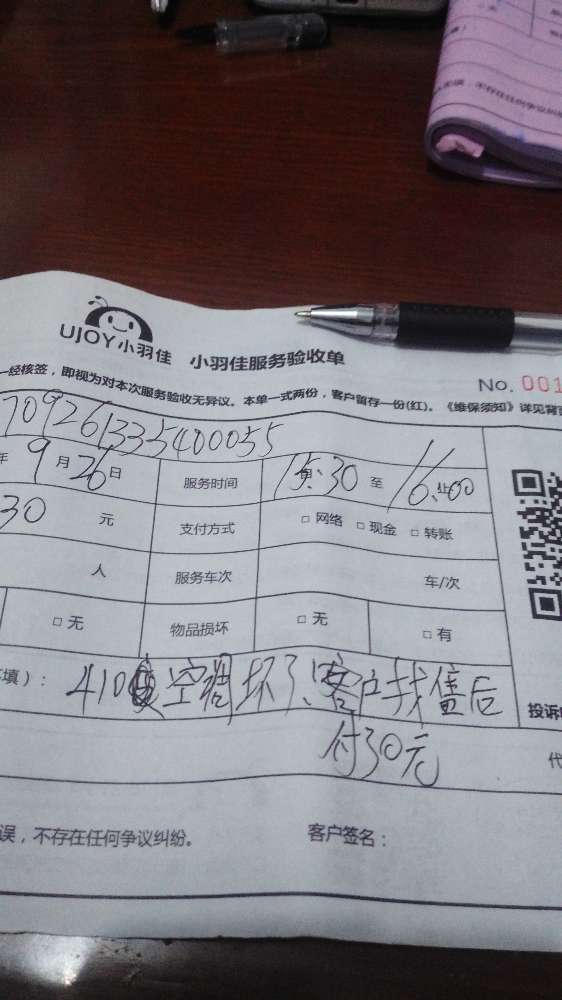 UJOY小羽佳 小羽佳服务验收单
No. 001
一经核签，即视为对本次服务验收无异议。本单一式两份，客户留存一份(红)。《维保须知》详见背
709261335400055
年9月26日 服务时间 15:30 至 16:00
30 元 支付方式 □ 网络 □ 现金 □ 转账
人 服务车次 车/次
□ 无 物品损坏 □ 无 □ 有
填）： 410 空调坏了、客户找售后
付30元
投诉
代
误，不存在任何争议纠纷。 客户签名：